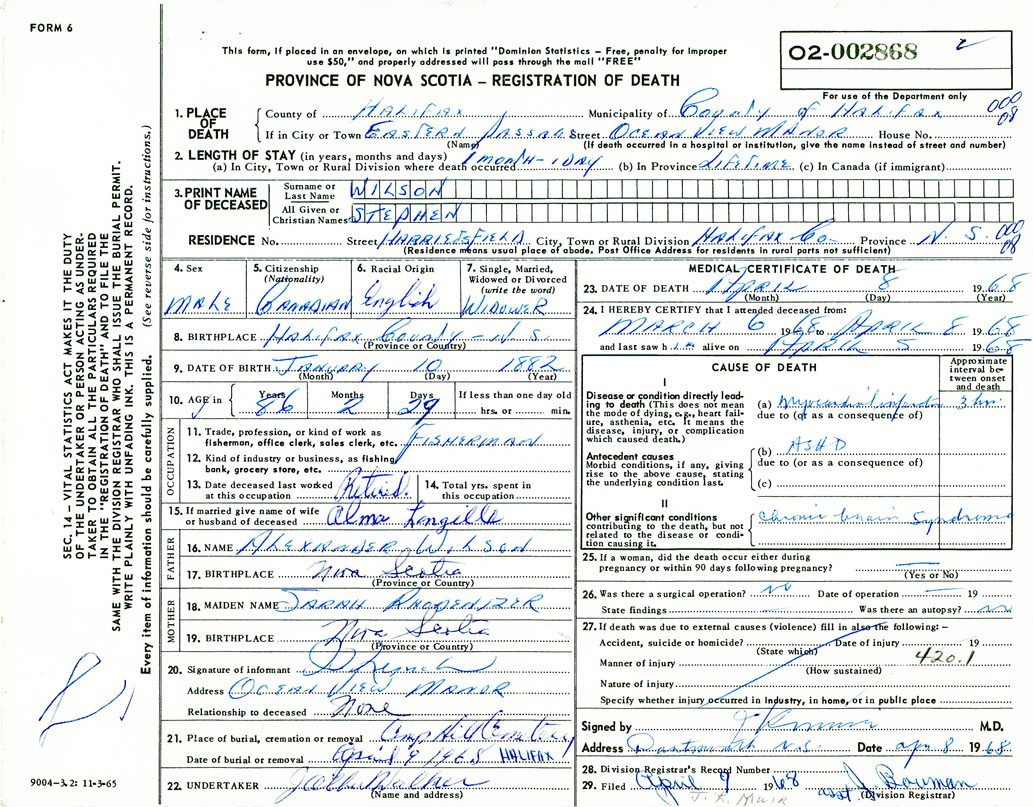 FORM 6
This form, if placed in an envelope, on which is printed "Dominion Statistics – Free, penalty for improper
use $50," and properly addressed will pass through the mail "FREE"
PROVINCE OF NOVA SCOTIA – REGISTRATION OF DEATH
02-002868 2
For use of the Department only
000
08
1. PLACE OF DEATH
County of HALIFAX Municipality of County of HALIFAX
If in City or Town EASTERN PASSAGE Street OCEAN VIEW MANOR House No.
(Name) (If death occurred in a hospital or institution, give the name instead of street and number)
2. LENGTH OF STAY (in years, months and days)
(a) In City, Town or Rural Division where death occurred 1 MONTH-1DAY (b) In Province LIFETIME (c) In Canada (if immigrant)
3. PRINT NAME OF DECEASED
Surname or Last Name WILSON
All Given or Christian Names STEPHEN
RESIDENCE No. Street HARRIETSFIELD City, Town or Rural Division HALIFAX Co. Province N.S. 000
08
(Residence means usual place of abode. Post Office Address for residents in rural parts not sufficient)
4. Sex MALE
5. Citizenship (Nationality) CANADIAN
6. Racial Origin English
7. Single, Married, Widowed or Divorced (write the word) WIDOWER
8. BIRTHPLACE HALIFAX COUNTY - N.S.
(Province or Country)
9. DATE OF BIRTH JANUARY 10 1882
(Month) (Day) (Year)
10. AGE in Years 86 Months 2 Days 29 If less than one day old
hrs. or min.
OCCUPATION
11. Trade, profession, or kind of work as
fisherman, office clerk, sales clerk, etc. FISHERMAN
12. Kind of industry or business, as fishing,
bank, grocery store, etc.
13. Date deceased last worked
at this occupation Retired.
14. Total yrs. spent in
this occupation
15. If married give name of wife
or husband of deceased Alma Langille
FATHER
16. NAME ALEXANDER WILSON
17. BIRTHPLACE Nova Scotia
(Province or Country)
MOTHER
18. MAIDEN NAME SARAH RHODENIZER
19. BIRTHPLACE Nova Scotia
(Province or Country)
20. Signature of informant
Address OCEAN VIEW MANOR
Relationship to deceased None
21. Place of burial, cremation or removal Camp Hill Cemetery
Date of burial or removal April 9 1968 HALIFAX
22. UNDERTAKER
(Name and address)
MEDICAL CERTIFICATE OF DEATH
23. DATE OF DEATH APRIL 8 1968
(Month) (Day) (Year)
24. I HEREBY CERTIFY that I attended deceased from:
MARCH 6 1968 to APRIL 8 1968
and last saw him alive on APRIL 5 1968
CAUSE OF DEATH
Approximate interval between onset and death
I
Disease or condition directly leading to death (This does not mean
the mode of dying, e.g., heart failure, asthenia, etc. It means the
disease, injury, or complication
which caused death.)
(a) Myocardial infarction 3 hrs
due to (or as a consequence of)
Antecedent causes
Morbid conditions, if any, giving
rise to the above cause, stating
the underlying condition last.
(b) ASHD
due to (or as a consequence of)
(c)
II
Other significant conditions
contributing to the death, but not
related to the disease or condition causing it.
Chronic brain Syndrome
25. If a woman, did the death occur either during
pregnancy or within 90 days following pregnancy?
(Yes or No)
26. Was there a surgical operation? NO Date of operation 19
State findings Was there an autopsy? No
27. If death was due to external causes (violence) fill in also the following: –
Accident, suicide or homicide? Date of injury 19
(State which)
Manner of injury 420.1
(How sustained)
Nature of injury
Specify whether injury occurred in Industry, in home, or in public place
Signed by M.D.
Address Dartmouth N.S. Date apr. 8 1968.
28. Division Registrar's Record Number
29. Filed April 9 1968 asst J. Bowman
(Division Registrar)
J. F. Muir
SEC. 14 – VITAL STATISTICS ACT MAKES IT THE DUTY
OF THE UNDERTAKER OR PERSON ACTING AS UNDER-
TAKER TO OBTAIN ALL THE PARTICULARS REQUIRED
IN THE "REGISTRATION OF DEATH" AND TO FILE THE
SAME WITH THE DIVISION REGISTRAR WHO SHALL ISSUE THE BURIAL PERMIT.
WRITE PLAINLY WITH UNFADING INK. THIS IS A PERMANENT RECORD.
Every item of information should be carefully supplied. (See reverse side for instructions.)
9004-3.2: 11-3-65